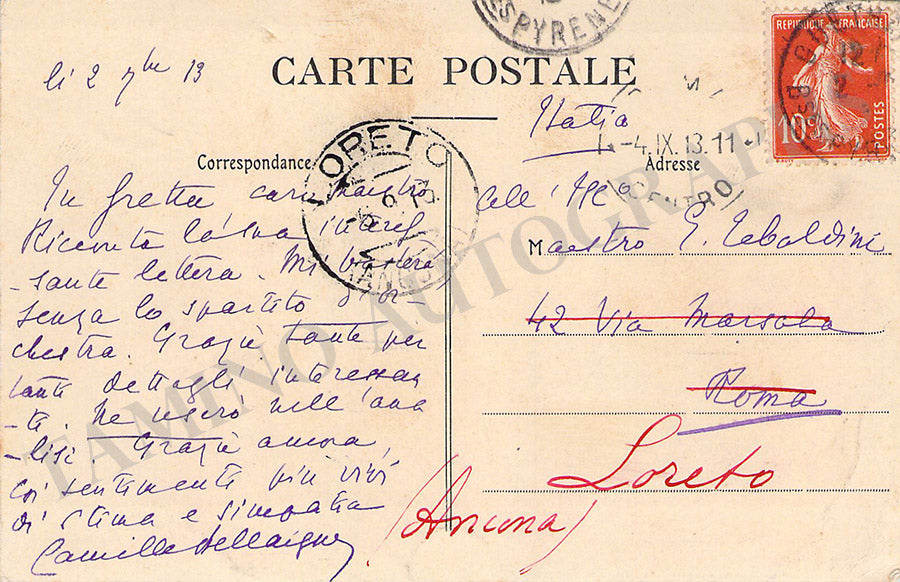 li 2 7bre 13
CARTE POSTALE
REPUBLIQUE FRANCAISE
10c
POSTES
SPYRENE
Italia
4.IX.13.11
Correspondance
Adresse
LORETO
CENTRO
In fretta caro Maestro
Ricevuta la sua interes
-sante lettera. Mi basterà
senza lo spartito d'or-
chestra. Grazie tante per
tanti dettagli interessan
-ti. Ne userò nell'ana
-lisi. Grazie ancora,
coi sentimenti più vivi
di stima e simpatia
Camille Bellaigue
Al
M
Maestro G. Tebaldini
42 Via Marsala
Roma
Loreto
(Ancona)
TAMINO AUTOGRAPHS